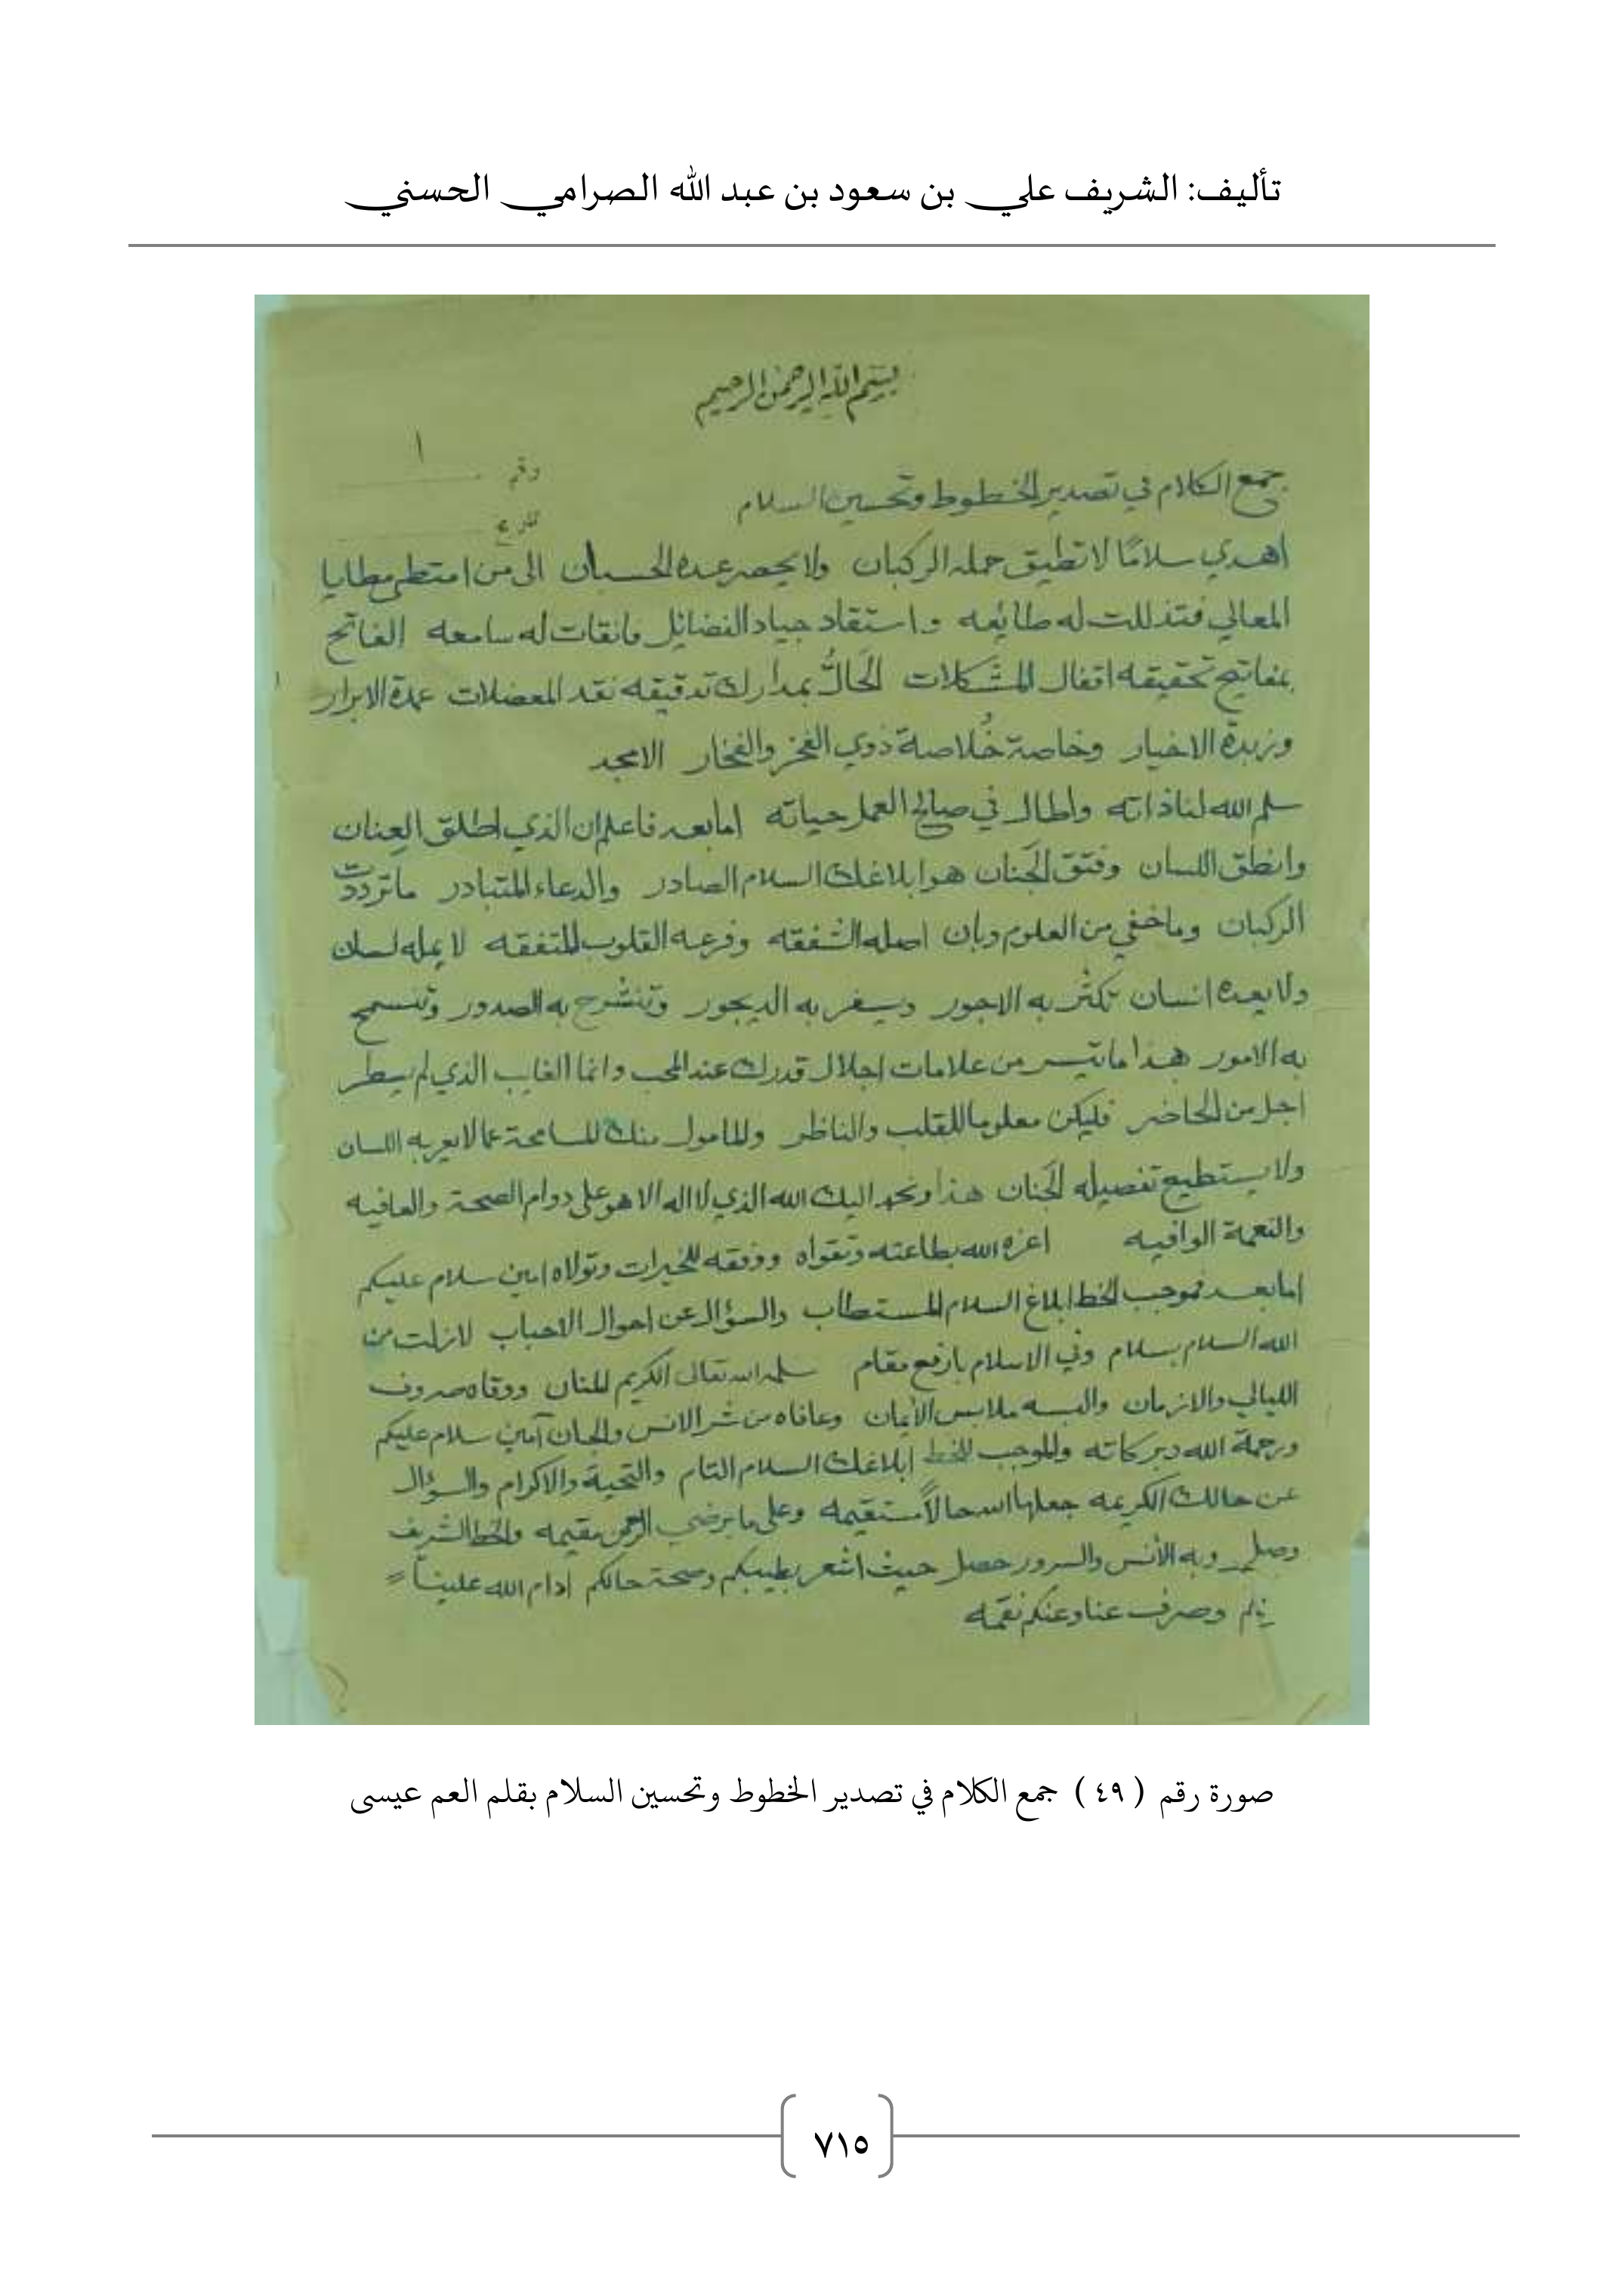 تأليف: الشريف علي بن سعود بن عبد الله الصرامي الحسني
بسم الله الرحمن الرحيم
رقم ١
جمع الكلام في تصدير الخطوط وتحسين السلام
اهدي سلامًا لا تطيق حمله الركبان ولا يحصر عده الحسبان الى من امتطى مطايا
المعالي فتذللت له طائعه واستقاد جياد الفضائل فانقات له سامعه الفاتح
بمفاتيح تحقيقه اقفال المشكلات الحَالُّ بمدارك تدقيقه نقد المعضلات عمدة الابرار
وزبدة الاخيار وخاصة خُلاصة ذوي الفخر والفخار الامجد
سلم الله لنا ذاته واطال في صالح العمل حياته اما بعد فاعلم ان الذي اطلق العِنان
وانطق اللسان وفتق الجَنان هو ابلاغك السلام الصادر والدعاء المتبادر ما ترددت
الركبان وما خفي من العلوم وبان اصله الشفقه وفرعه القلوب المتفقه لا يمله لسان
ولا يعده انسان تكثر به الاجور ويسفر به الديجور وتنشرح به الصدور وتنسمح
به الامور هذا ما تيسر من علامات اجلال قدرك عند المحب وانما الغايب الذي لم يسطر
اجل من الحاضر فليكن معلوما للقلب والناظر والمامول منك المسامحة عما لا يعربه اللسان
ولا يستطيع تفصيله الجَنان هذا ونحمد اليك الله الذي لا اله الا هو على دوام الصحة والعافيه
والنعمة الوافيه اعزه الله بطاعته وتقواه ووفقه للخيرات وتولاه امين سلام عليكم
اما بعد فموجب الخط ابلاغ السلام المستطاب والسؤال عن احوال الاحباب لازلت من
الله السلام بسلام وفي الاسلام بارفع مقام سلمه الله تعالى الكريم المنان ووقاه صروف
الليالي والازمان والبسه ملابس الأيمان وعافاه من شر الانس والجان آمين سلام عليكم
ورحمة الله وبركاته والموجب للخط ابلاغك السلام التام والتحية والاكرام والسؤال
عن حالك الكريمه جعلها الله حالاً مستقيمه وعلى ما يرضي الرحمن مقيمه والخط الشريف
وصل وبه الأنس والسرور حصل حيث اشعر بطيبكم وصحة حالكم ادام الله علينا
وصرف عنا وعنكم نقمه
صورة رقم ( ٤٩ ) جمع الكلام في تصدير الخطوط وتحسين السلام بقلم العم عيسى
٧١٥